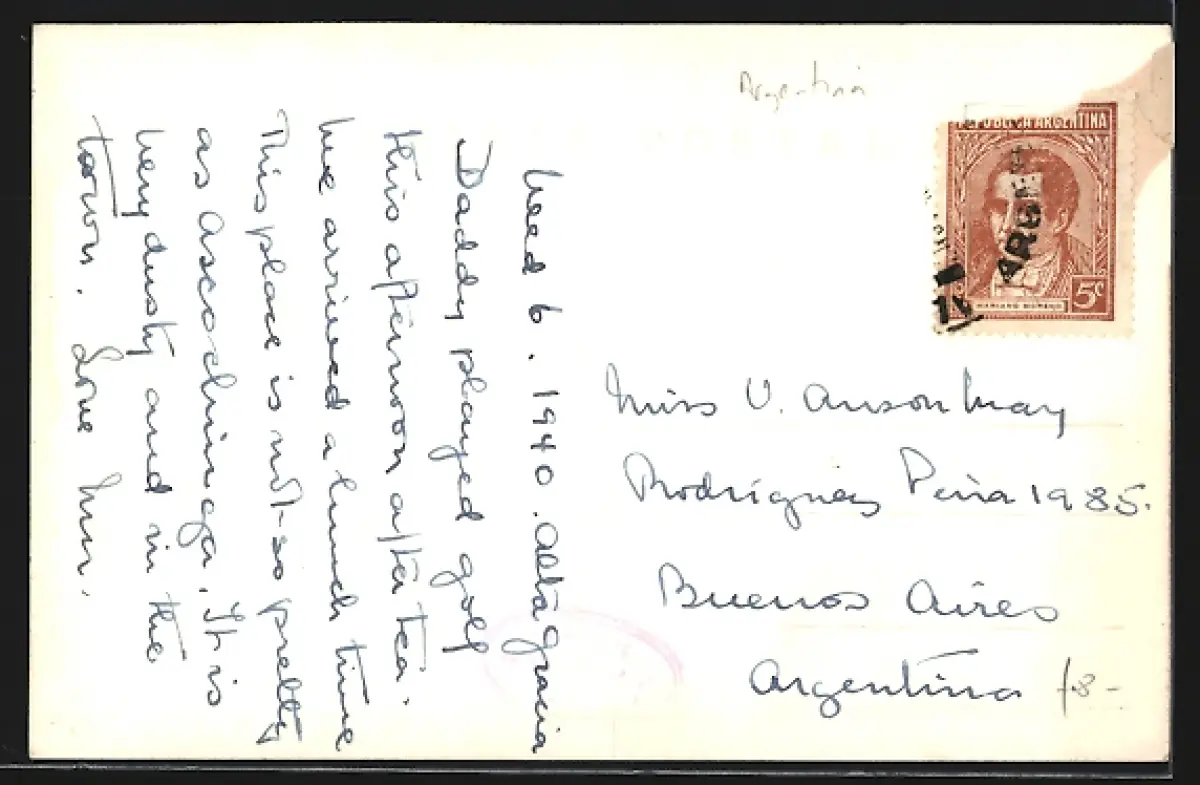 Wed 6. 1940. Alta gracia
Daddy played golf
this afternoon after tea.
We arrived a lunch time
This place is not so pretty
as Ascochinga. It is
very dusty and in the
town. Love Mum.
Argentina
REPUBLICA ARGENTINA
MARIANO MORENO
5c
ARGE
Miss V. Anson May
Rodriguez Pena 1985.
Buenos Aires
Argentina
f8-